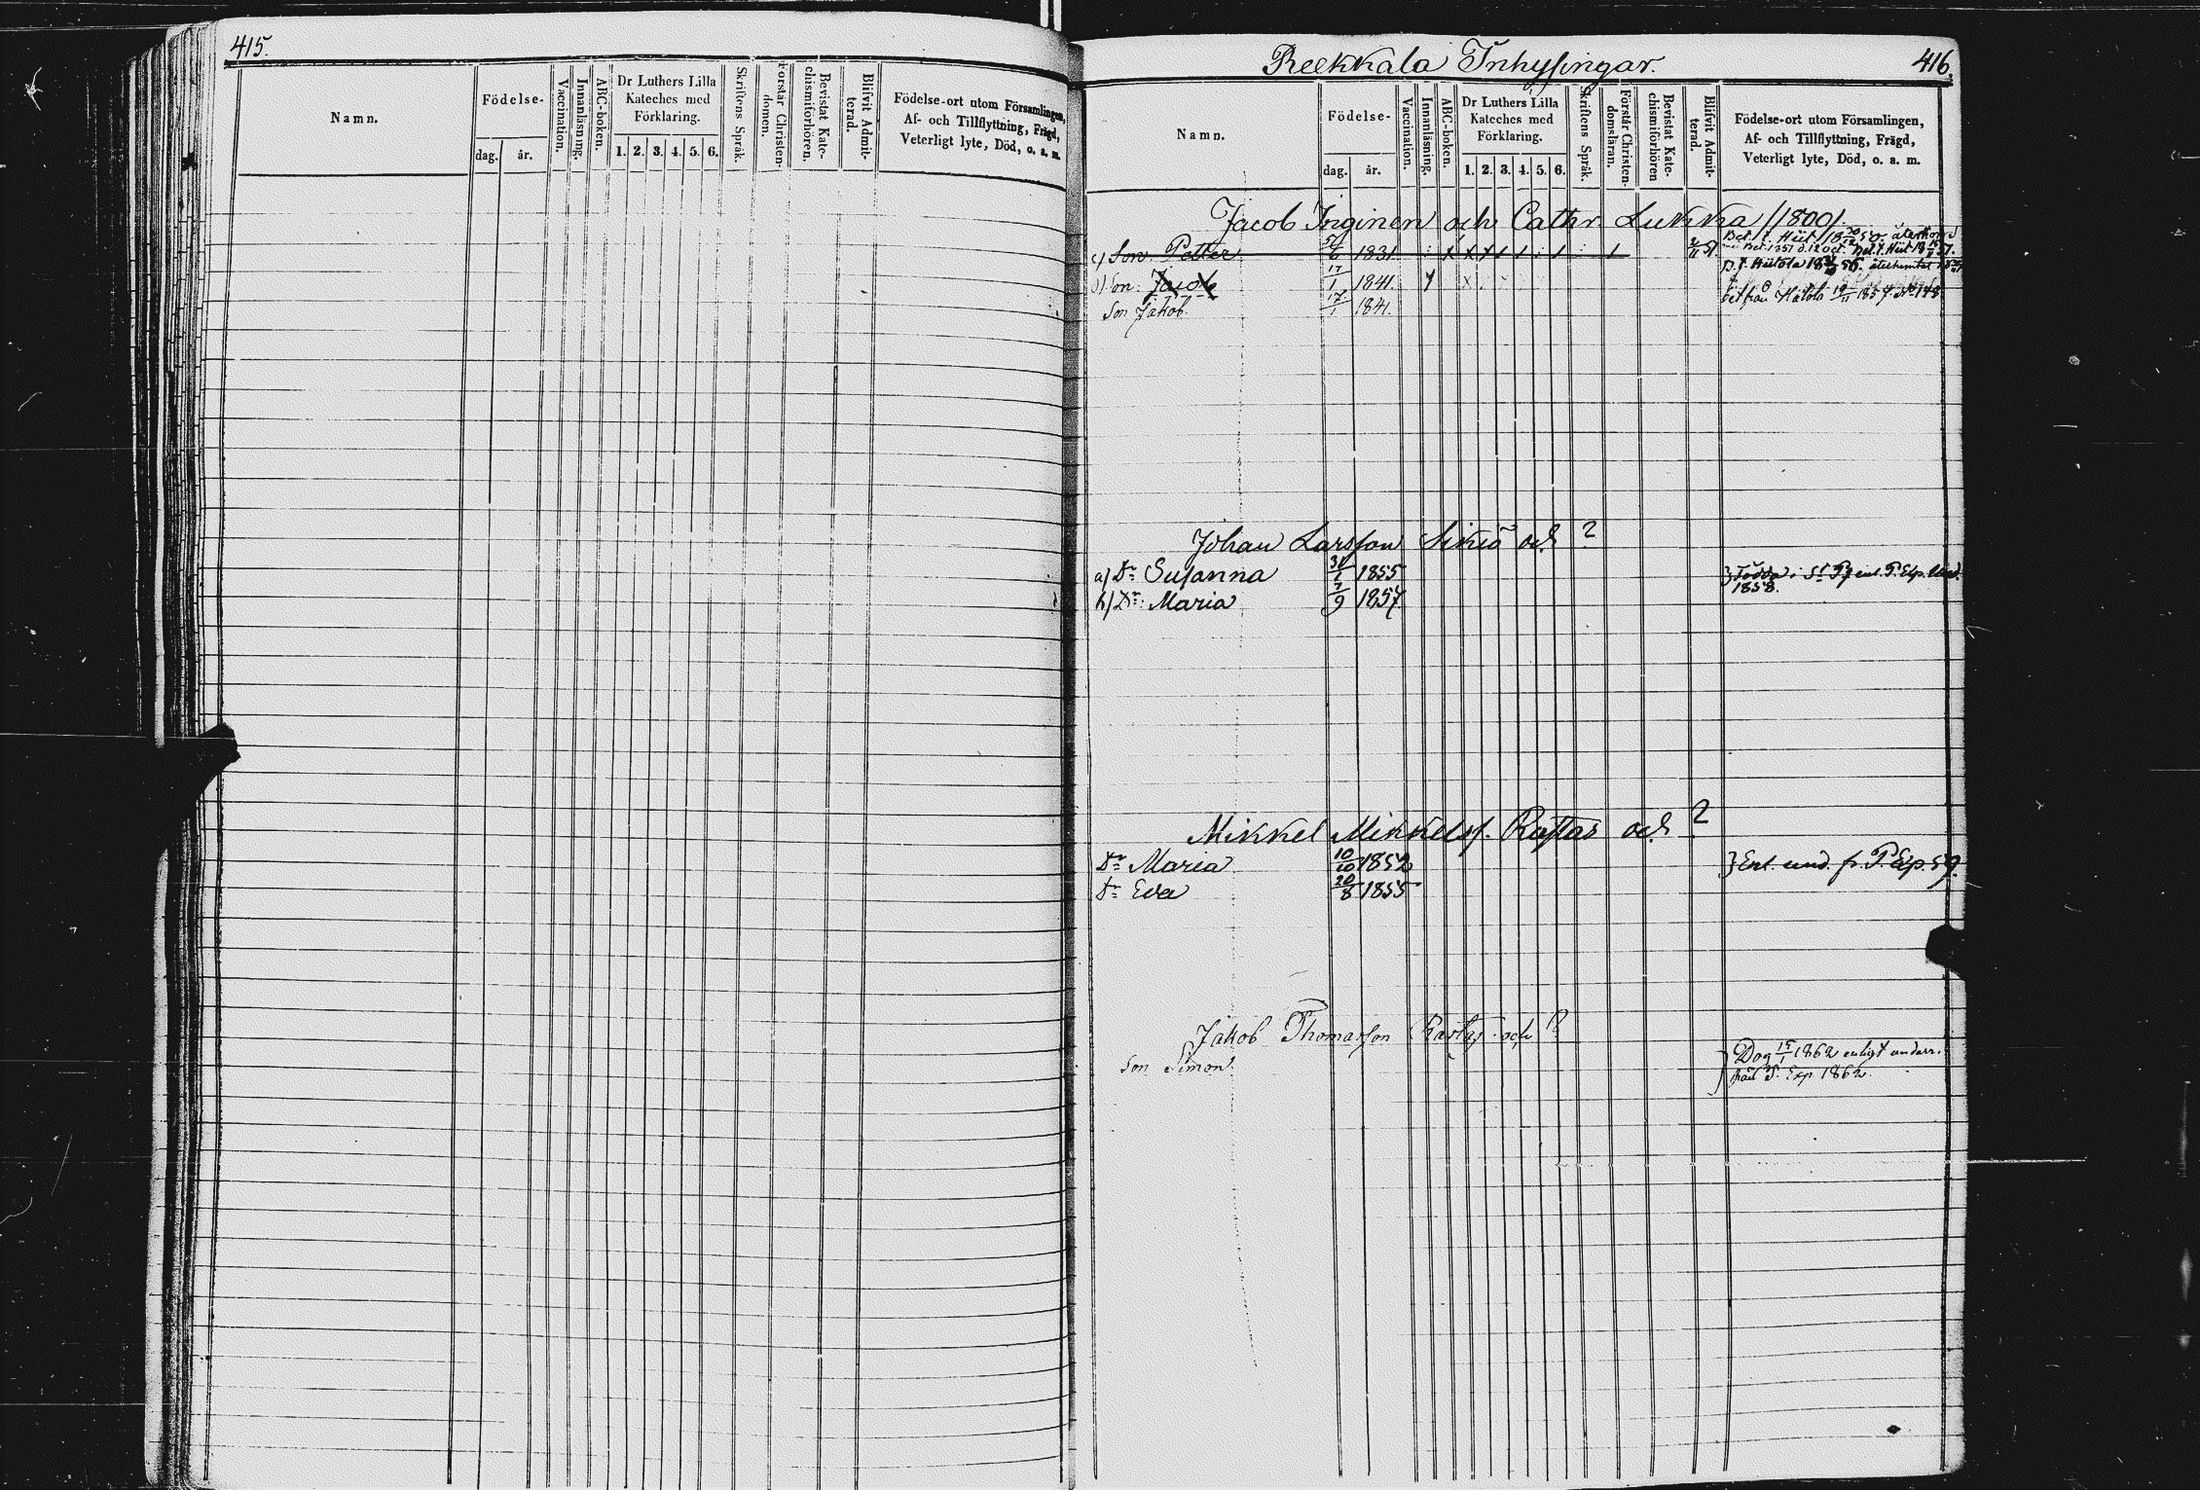 415.
Namn.
Födelse-
dag. år.
Vaccination.
Innanläsning.
ABC-boken.
Dr Luthers Lilla
Kateches med
Förklaring.
1. 2. 3. 4. 5. 6.
Skriftens Språk.
Förstår Christen-
domen.
Bevistat Kate-
chismiförhören.
Blifvit Admit-
terad.
Födelse-ort utom Församlingen,
Af- och Tillflyttning, Frägd,
Veterligt lyte, Död, o. a. m.
Reekkala Inhysingar.
416.
Namn.
Födelse-
dag. år.
Vaccination.
Innanläsning.
ABC-boken.
Dr Luthers Lilla
Kateches med
Förklaring.
1. 2. 3. 4. 5. 6.
Skriftens Språk.
Förstår Christen-
domsläran.
Bevistat Kate-
chismiförhören
Blifvit Admit-
terad.
Födelse-ort utom Församlingen,
Af- och Tillflyttning, Frägd,
Veterligt lyte, Död, o. a. m.
Jacob Inginen och Cathr. Lukka /1800/.
Son Petter 1831
Son Jacob 17/1 1841.
Son Jakob 17/1 1841.
Johan Larsson och ?
a) Dr Susanna 1855
b) Dr Maria 7/9 1857
1858.
Mikkel Mikkelss. Rastas och ?
Dr Maria 10/10 1852 Enl. und. fr. P. Exp. 59.
Dr Eva 20/8 1855
Jakob Thomasson Rastas och ?
Son Simon Dog 15/1 1862 enligt underr.
från P. Exp 1862.